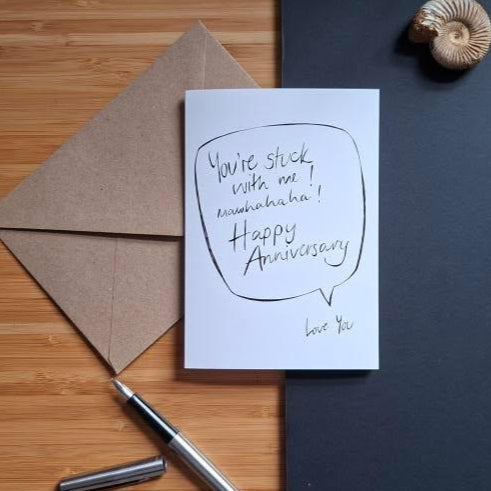 You're stuck
with me!
Mawhahaha!
Happy
Anniversary
Love You